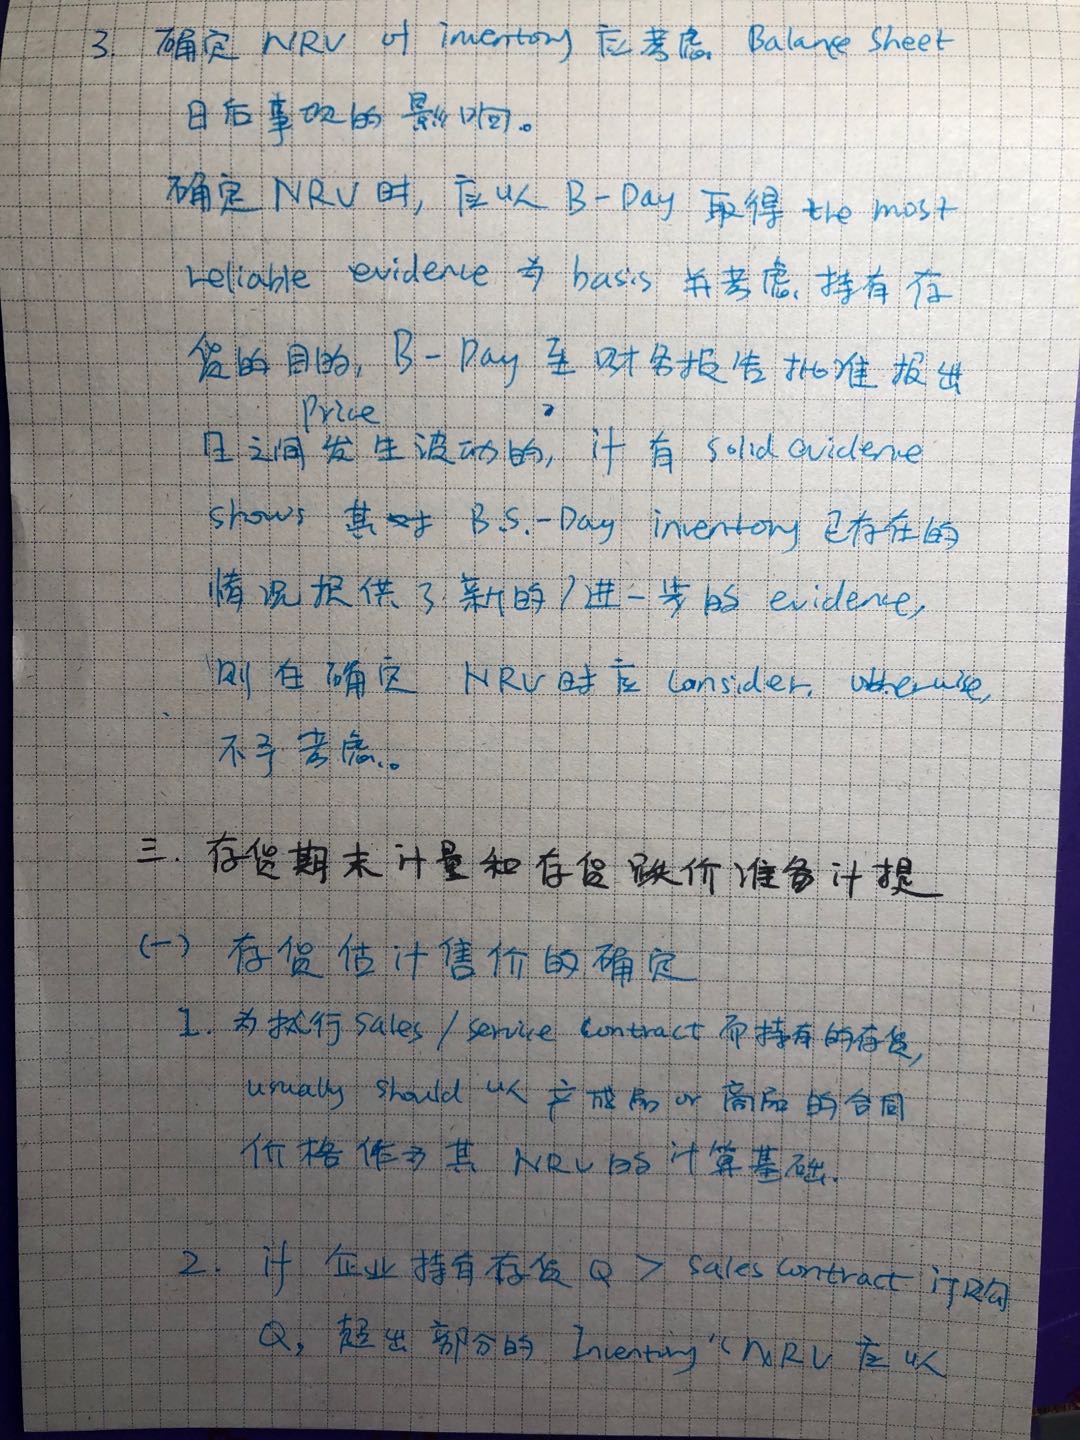 3. 确定 NRV of inventory 应考虑 Balance Sheet
日后事项的影响。
确定 NRV 时, 应以 B-Day 取得 the most
reliable evidence 为 basis 并考虑持有存
货的目的, B-Day 至财务报告批准报出
price
日之间发生波动的, if 有 solid evidence
shows 其对 B.S.-Day inventory 已存在的
情况提供了新的/进一步的 evidence,
则在确定 NRV 时应 consider. otherwise,
不予考虑。
三. 存货期末计量和存货跌价准备计提
(一) 存货估计售价的确定
1. 为执行 sales / service contract 而持有的存货,
usually should 以产成品 or 商品的合同
价格作为其 NRV 的计算基础.
2. if 企业持有存货 Q > sales contract 订购
Q, 超出部分的 Inventory's NRV 应以